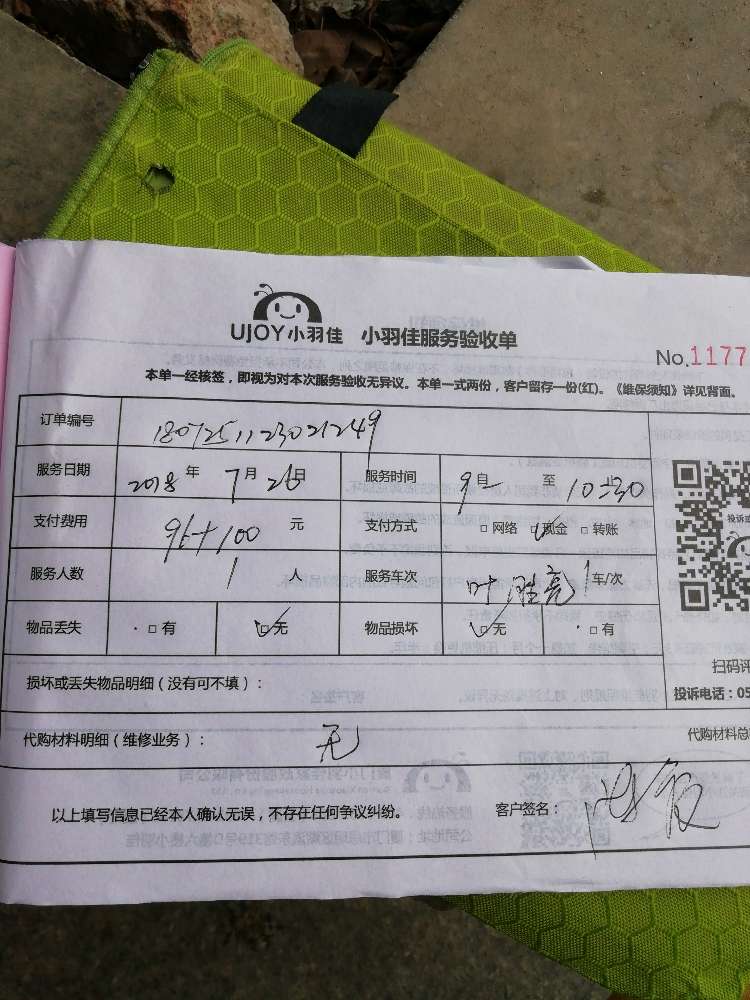 UJOY小羽佳 小羽佳服务验收单
No.1177
本单一经核签，即视为对本次服务验收无异议。本单一式两份，客户留存一份(红)。《维保须知》详见背面。
订单编号 1807251123021249
服务日期 2018年7月26日 服务时间 9自 至 10:30
支付费用 95+100 元 支付方式 □网络 ☑现金 □转账
服务人数 1 人 服务车次 叶胜亮 1 车/次
物品丢失 ·□有 ☑无 物品损坏 ☑无 ·□有
损坏或丢失物品明细（没有可不填）：
扫码评
投诉电话：05
代购材料明细（维修业务）： 无 代购材料总
以上填写信息已经本人确认无误，不存在任何争议纠纷。 客户签名：